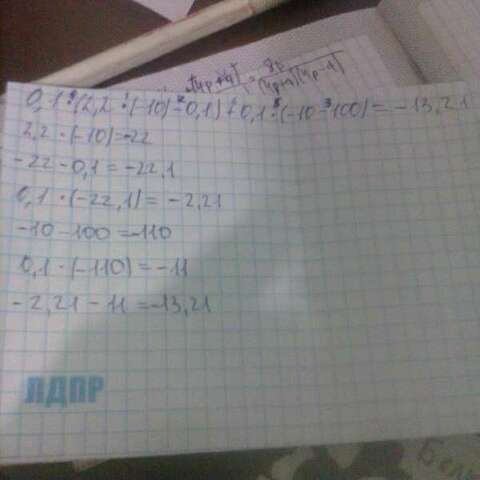 [4p+4] = 8p
(4p+1)(4p-1)
0,1·(2,2·(-10)-0,1)+0,1·(-10-100)=-13,21
2,2·(-10)=-22
-22-0,1=-22,1
0,1·(-22,1)=-2,21
-10-100=-110
0,1·(-110)=-11
-2,21-11=-13,21
ЛДПР